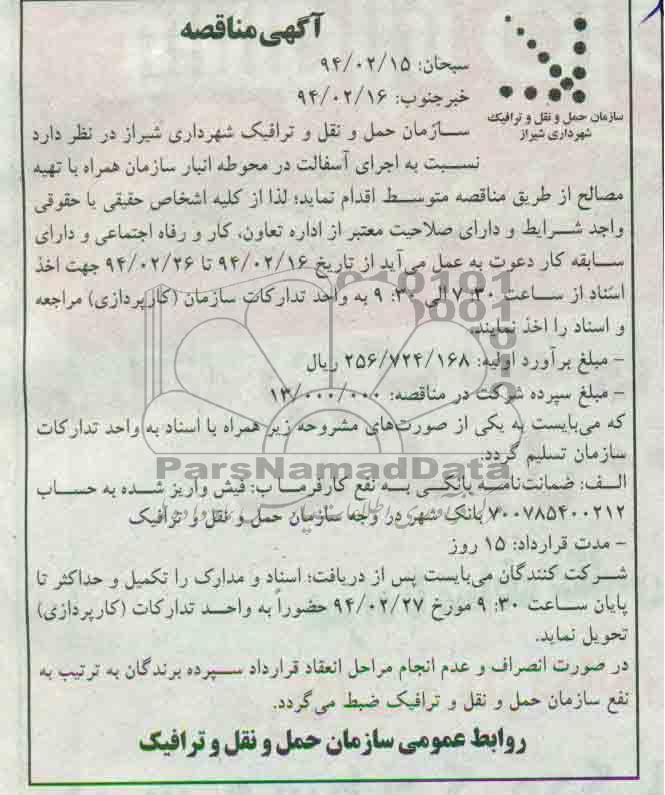 آگهی مناقصه
سازمان حمل و نقل و ترافیک
شهرداری شیراز
سبحان: ۹۴/۰۲/۱۵
خبرجنوب: ۹۴/۰۲/۱۶
سازمان حمل و نقل و ترافیک شهرداری شیراز در نظر دارد
نسبت به اجرای آسفالت در محوطه انبار سازمان همراه با تهیه
مصالح از طریق مناقصه متوسط اقدام نماید؛ لذا از کلیه اشخاص حقیقی یا حقوقی
واجد شرایط و دارای صلاحیت معتبر از اداره تعاون، کار و رفاه اجتماعی و دارای
سابقه کار دعوت به عمل می‌آید از تاریخ ۹۴/۰۲/۱۶ تا ۹۴/۰۲/۲۶ جهت اخذ
اسناد از ساعت ۷:۳۰ الی ۹:۳۰ به واحد تدارکات سازمان (کارپردازی) مراجعه
و اسناد را اخذ نمایند.
– مبلغ برآورد اولیه: ۲۵۶/۷۲۴/۱۶۸ ریال
– مبلغ سپرده شرکت در مناقصه: ۱۳/۰۰۰/۰۰۰
که می‌بایست به یکی از صورت‌های مشروحه زیر همراه با اسناد به واحد تدارکات
سازمان تسلیم گردد.
ParsNamadData
الف: ضمانت‌نامه بانکی به نفع کارفرما ب: فیش واریز شده به حساب
۷۰۰۷۸۵۴۰۰۲۱۲ بانک شهر در وجه سازمان حمل و نقل و ترافیک
– مدت قرارداد: ۱۵ روز
شرکت کنندگان می‌بایست پس از دریافت؛ اسناد و مدارک را تکمیل و حداکثر تا
پایان ساعت ۹:۳۰ مورخ ۹۴/۰۲/۲۷ حضوراً به واحد تدارکات (کارپردازی)
تحویل نماید.
در صورت انصراف و عدم انجام مراحل انعقاد قرارداد سپرده برندگان به ترتیب به
نفع سازمان حمل و نقل و ترافیک ضبط می‌گردد.
روابط عمومی سازمان حمل و نقل و ترافیک